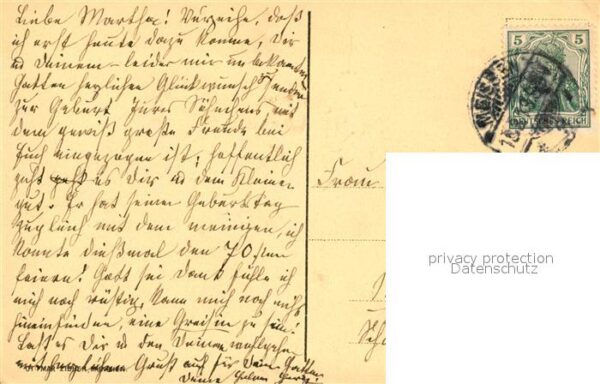 Liebe Martha! Verzeihe, daß
ich erst heute dazu komme, Dir
u Deinem – leider mir unbekannten
Gatten herzlichen Glückwunsch senden
zur Geburt Jures Söhnchens, mit
dem gewiß große Freude bei
Euch eingezogen ist; hoffentlich
geht es Dir u dem Kleinen
gut. Er hat seinen Geburtstag
zugleich mit dem meinigen, ich
konnte dießmal den 70sten
feiern! Gott sei Dank fühle ich
mich noch rüstig, kann mich noch nicht
hineinfinden, eine Greisin zu sein!
Laßt es Dir u den Deinen wohlgehn
Gruß auch für Dein Gatten
Deine
Frau
5 5
DEUTSCHES REICH
privacy protection
Datenschutz